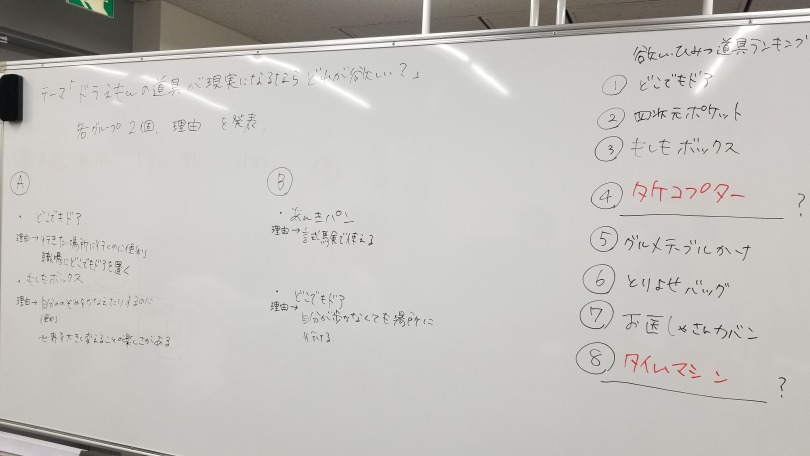 テーマ「ドラえもんの道具が現実になるなら どれが欲しい?」
各グループ 2個、理由 を発表
Ⓐ
・どこでもドア
理由→行きたい場所に行くのに便利
職場にどこでもドアを置く
・もしもボックス
理由→自分ののぞみをかなえたりするのに
便利
世界を大きく変えることの楽しさがある
Ⓑ
・あんきパン
理由→試験で使える
・どこでもドア
理由→
自分が歩かなくても場所に
行ける
欲しいひみつ道具ランキング
① どこでもドア
② 四次元ポケット
③ もしもボックス
④ タケコプター ?
⑤ グルメテーブルかけ
⑥ とりよせバッグ
⑦ お医しゃさんカバン
⑧ タイムマシン ?